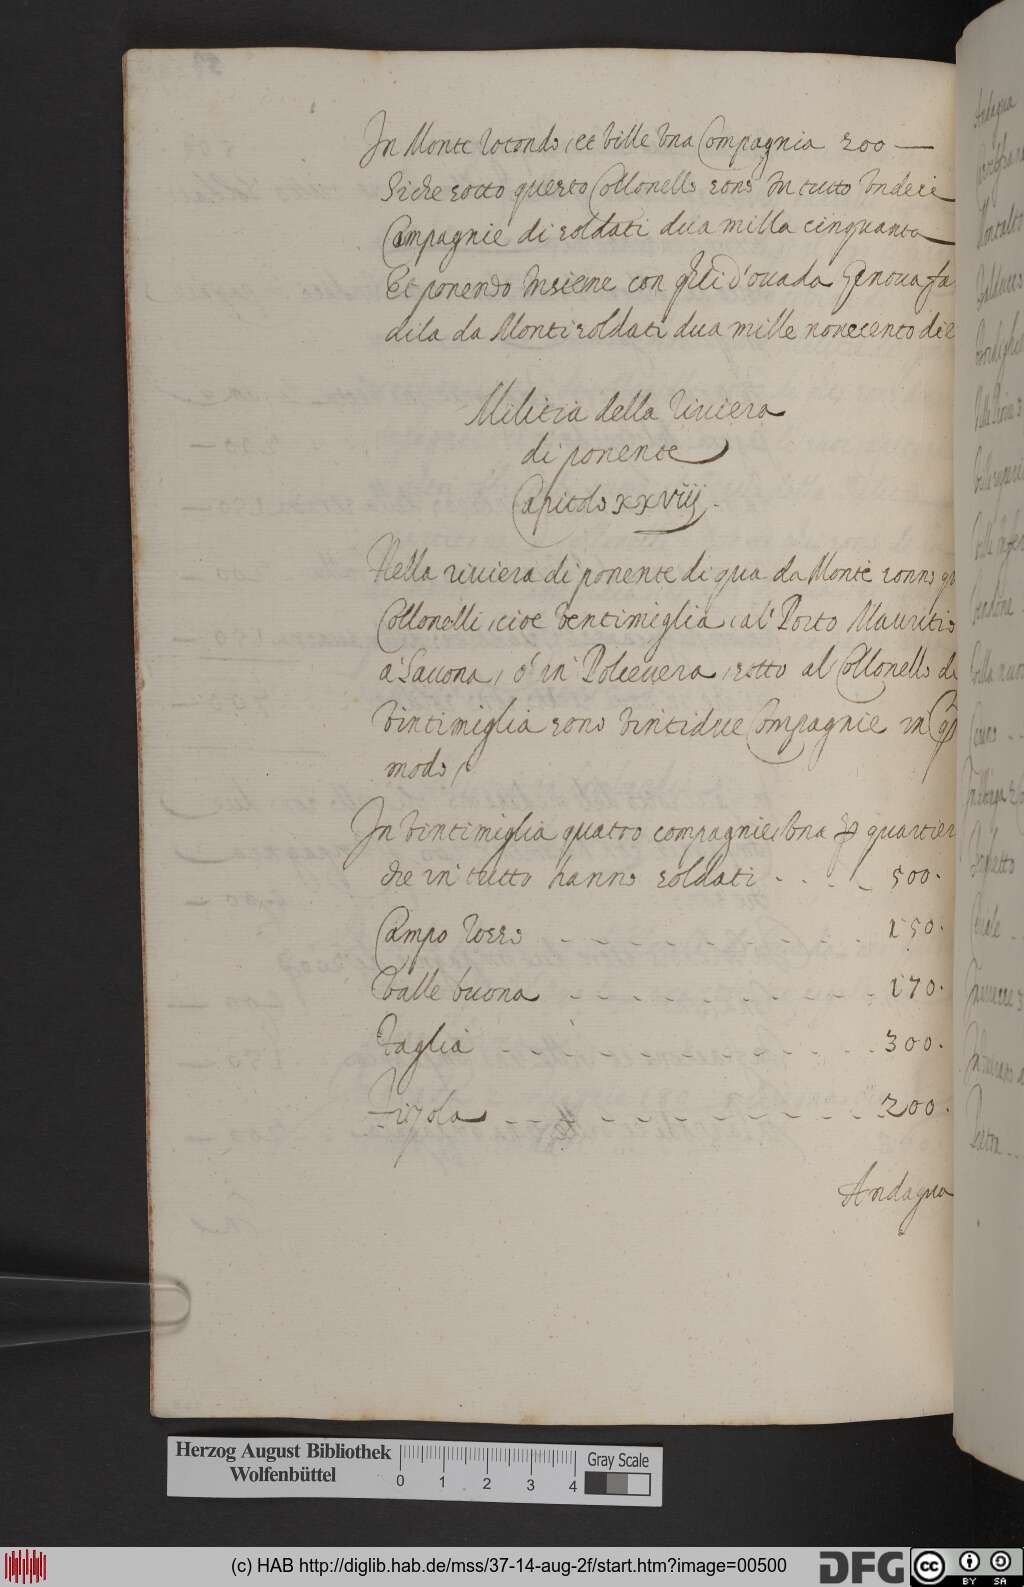 In Monte rotondo, et ville una Compagnia 200 —
Siche sotto questo Collonello sono in tutto undeci
Compagnie di soldati dua milla cinquanta
Et ponendo insieme con q̃lli d'ouada Genoua fa
di la da Monti soldati dua mille nonecento die
Militia della riuiera
di ponente
Capitolo xxviij.
Nella riuiera di ponente di qua da Monte sonno
Collonelli, cioe Ventimiglia, al' Porto Mauritio
a' Sauona, o' in Polceuera, sotto al Collonello di
Vintimiglia sono Vintidue Compagnie in
modo,
In Vintimiglia quatro compagnie, una ꝑ quartier
che in tutto hanno soldati - - - - 500.
Campo rosso - - - - - - 150.
Valle buona - - - - - - 170.
Taglia - - - - - - 300.
- - - - - - 200.
Andagua
Andagua
Montalto
Pietra
Herzog August Bibliothek
Wolfenbüttel
0 1 2 3 4
Gray Scale
(c) HAB http://diglib.hab.de/mss/37-14-aug-2f/start.htm?image=00500
DFG
cc BY SA